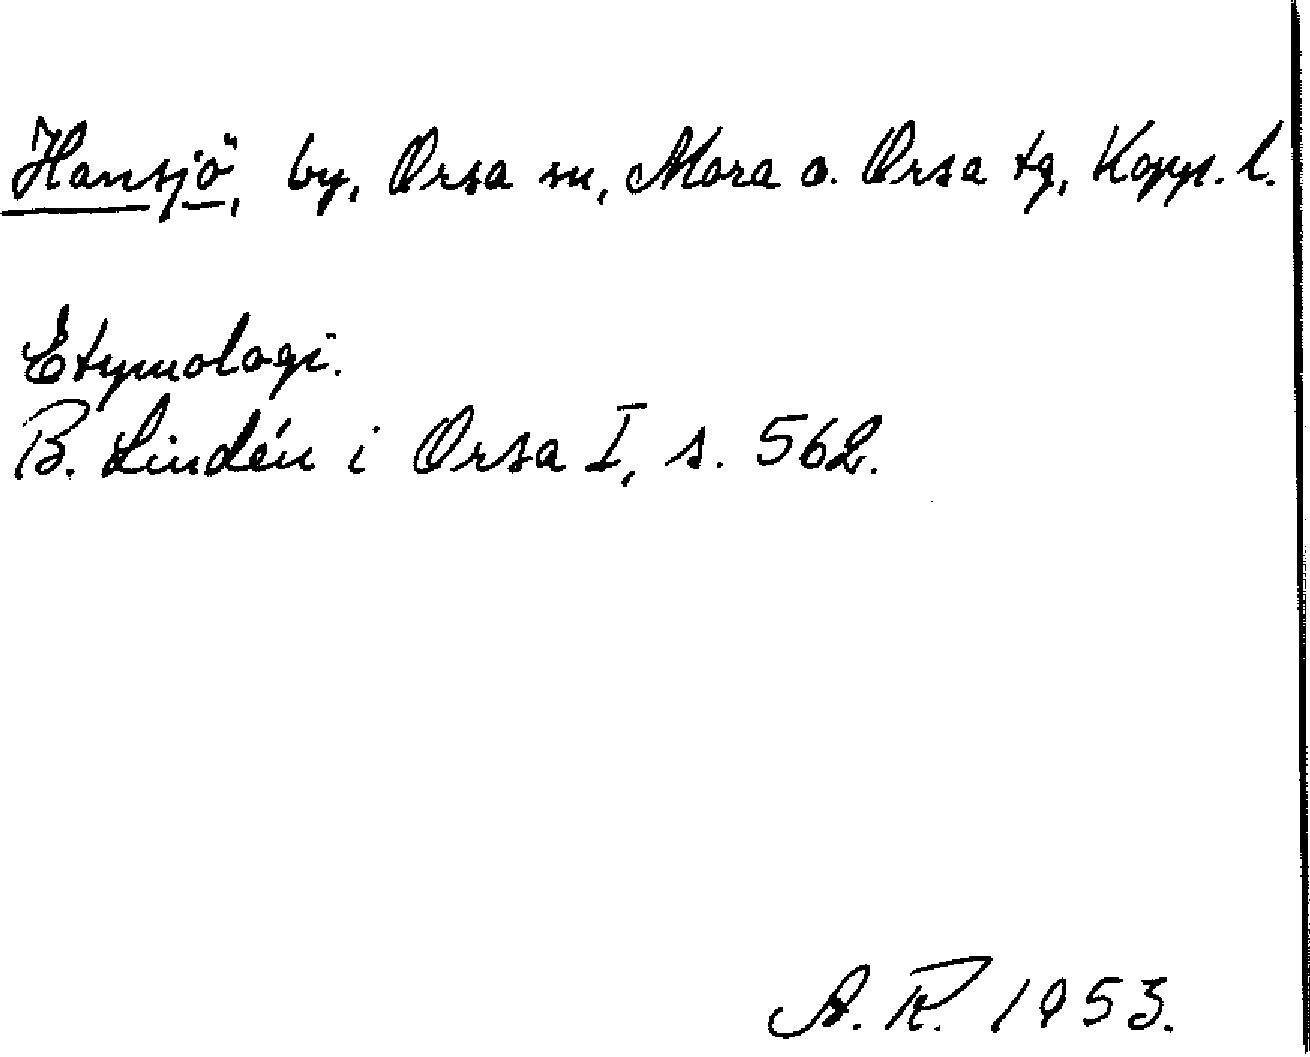 Hansjö, by, Orsa sn, Mora o. Orsa tg, Kopp. l.
Etymologi.
B. Lindén i Orsa I, s. 562.
A. R. 1953.